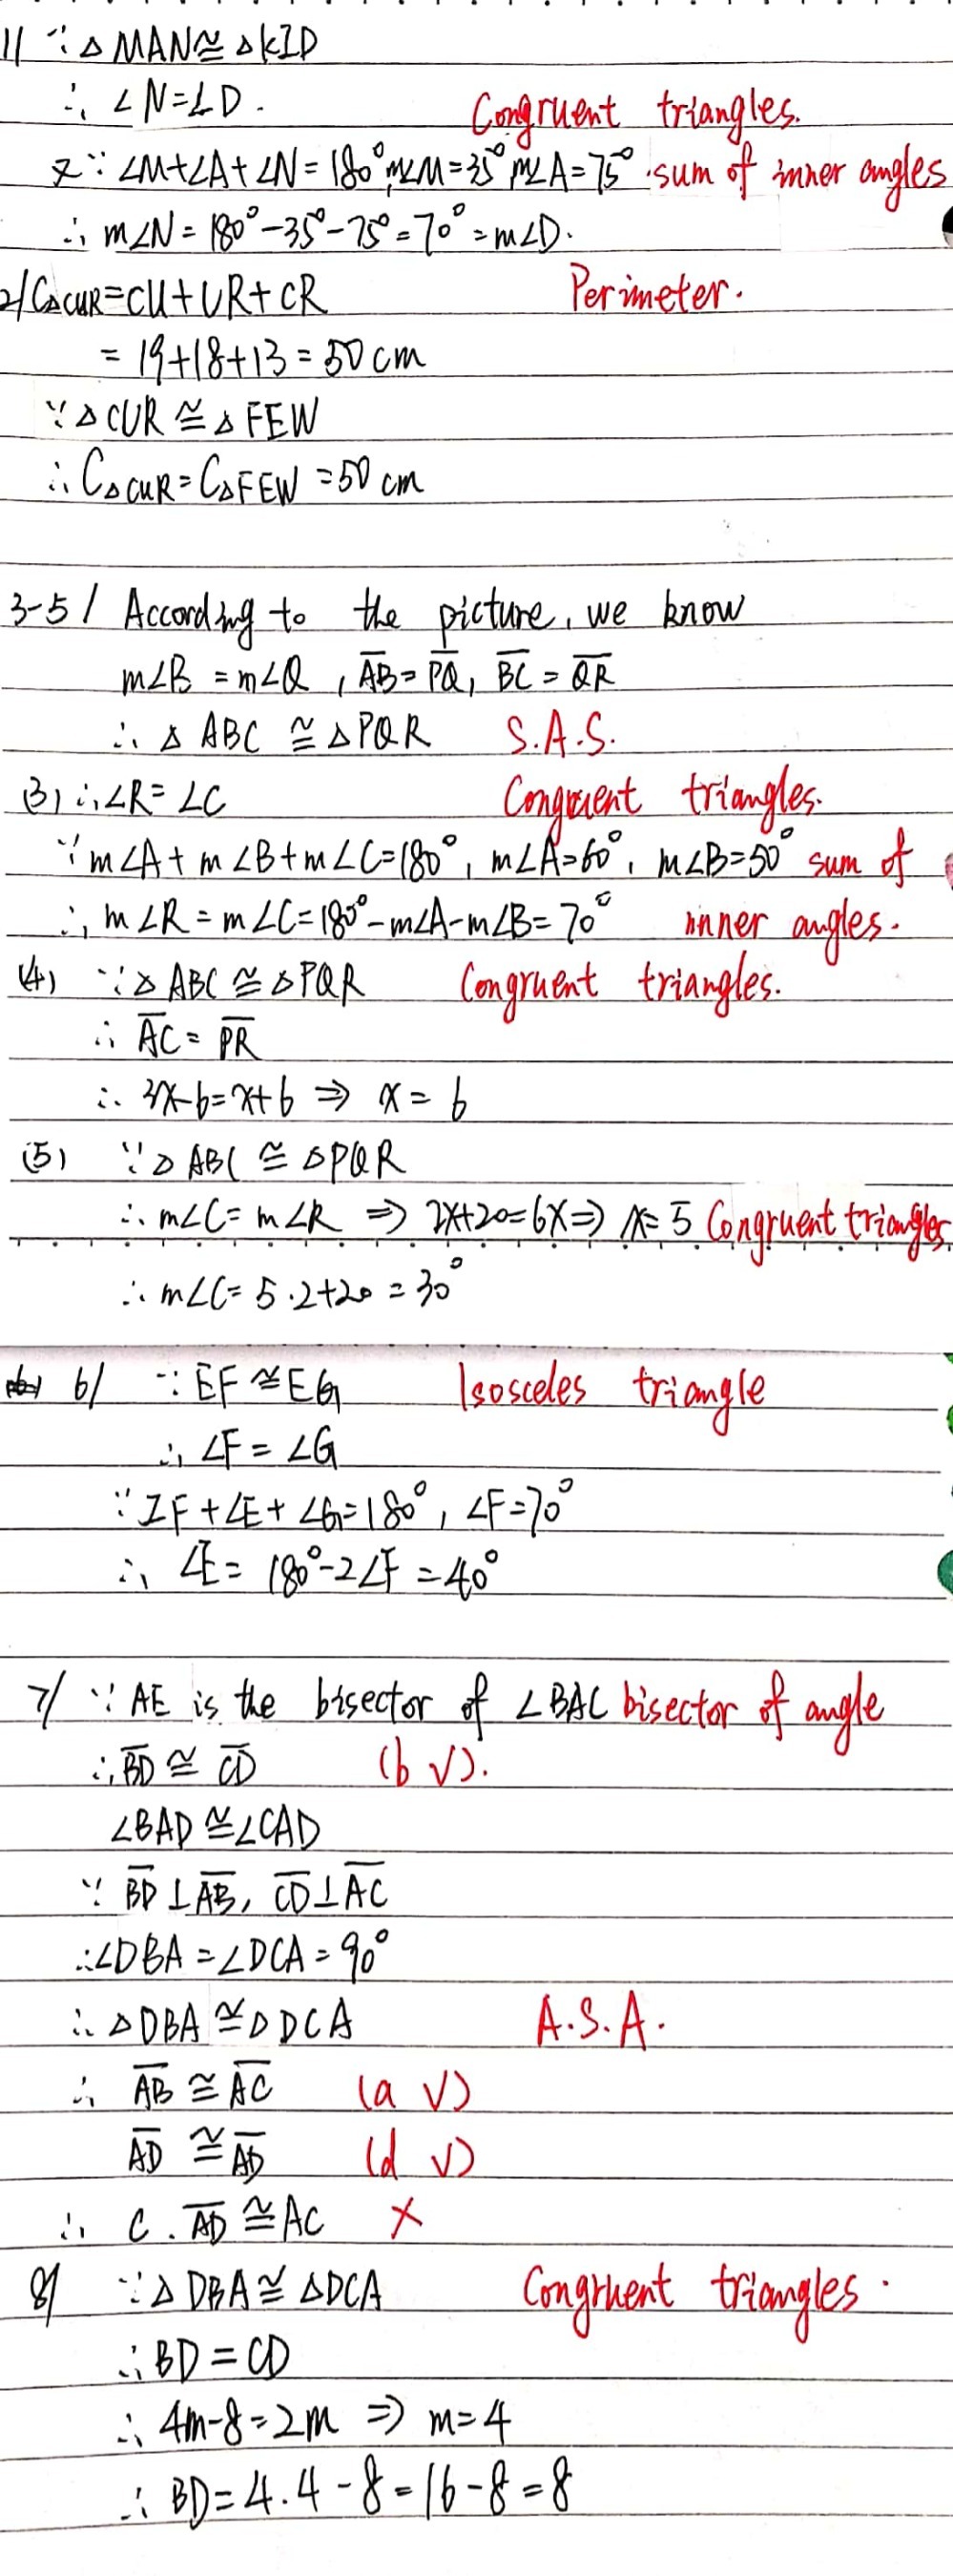 1/ ∵ △MAN≅△KID
∴ ∠N=∠D. Congruent triangles.
又∵ ∠M+∠A+∠N=180° m∠M=35° m∠A=75°. sum of inner angles
∴ m∠N=180°-35°-75°=70°=m∠D.
2/ C△CUR=CU+UR+CR Perimeter.
=19+18+13=50cm
∵△CUR≅△FEW
∴ C△CUR=C△FEW=50cm
3-5/ According to the picture, we know
m∠B=m∠Q, A̅B̅=P̅Q̅, B̅C̅=Q̅R̅
∴ △ABC≅△PQR S.A.S.
(3) ∴∠R=∠C Congruent triangles.
∵ m∠A+m∠B+m∠C=180°, m∠A=60°, m∠B=50° sum of
∴ m∠R=m∠C=180°-m∠A-m∠B=70° inner angles.
(4) ∵△ABC≅△PQR Congruent triangles.
∴ A̅C̅=P̅R̅
∴ 3x-6=x+6 ⇒ x=6
(5) ∵△ABC≅△PQR
∴ m∠C=m∠R ⇒ 2x+20=6x ⇒ x=5 Congruent triangles
∴ m∠C=5·2+20=30°
6/ ∵ EF≅EG Isosceles triangle
∴ ∠F=∠G
∵ ∠F+∠E+∠G=180°, ∠F=70°
∴ ∠E=180°-2∠F=40°
7/ ∵ AE is the bisector of ∠BAC bisector of angle
∴ B̅D̅≅C̅D̅ (b √).
∠BAD≅∠CAD
∵ B̅D̅⊥A̅B̅, C̅D̅⊥A̅C̅
∴∠DBA=∠DCA=90°
∴ △DBA≅△DCA A.S.A.
∴ A̅B̅≅A̅C̅ (a √)
A̅D̅≅A̅D̅ (d √)
∴ C. A̅D̅≅AC ×
8/ ∵△DBA≅△DCA Congruent triangles.
∴ BD=CD
∴ 4m-8=2m ⇒ m=4
∴ BD=4·4-8=16-8=8